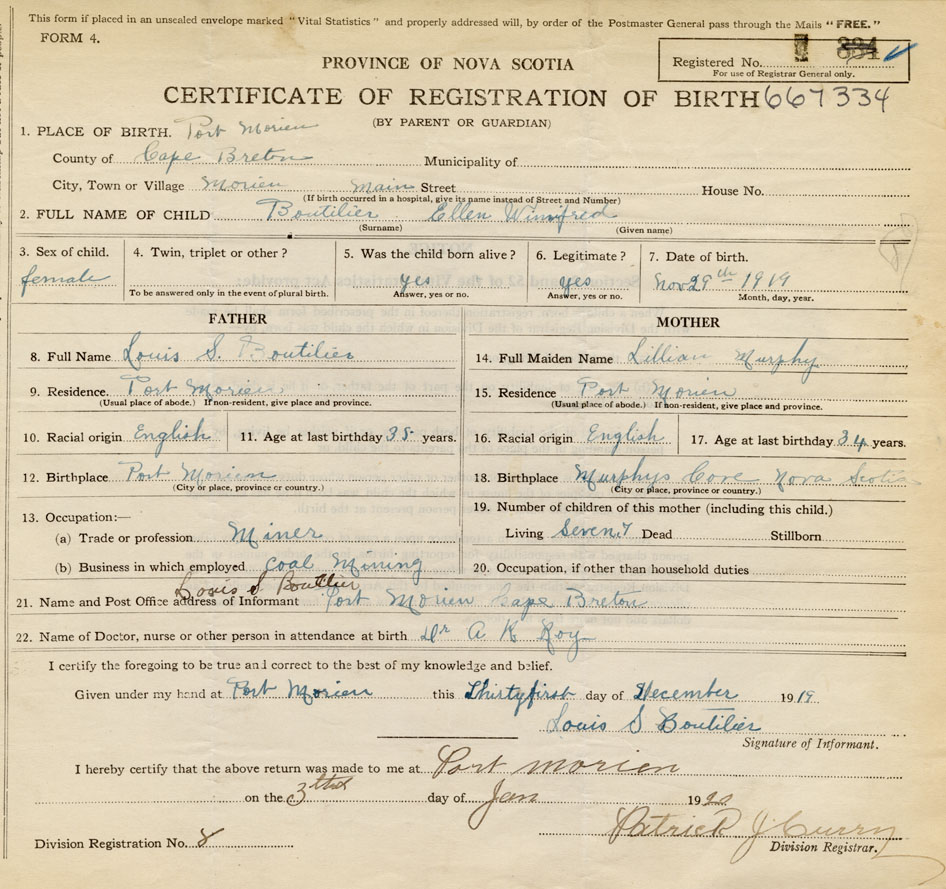 This form if placed in an unsealed envelope marked "Vital Statistics" and properly addressed will, by order of the Postmaster General pass through the Mails "FREE."
FORM 4.
Registered No. 334
For use of Registrar General only.
PROVINCE OF NOVA SCOTIA
CERTIFICATE OF REGISTRATION OF BIRTH 667334
(BY PARENT OR GUARDIAN)
1. PLACE OF BIRTH. Port Morien
County of Cape Breton Municipality of
City, Town or Village Morien Main Street House No.
(If birth occurred in a hospital, give its name instead of Street and Number)
2. FULL NAME OF CHILD Boutilier Ellen Winifred
(Surname) (Given name)
3. Sex of child. 4. Twin, triplet or other? 5. Was the child born alive? 6. Legitimate? 7. Date of birth.
female yes yes Nov 29th 1919
To be answered only in the event of plural birth. Answer, yes or no. Answer, yes or no. Month, day, year.
FATHER MOTHER
8. Full Name Louis S. Boutilier 14. Full Maiden Name Lillian Murphy
9. Residence. Port Morien 15. Residence Port Morien
(Usual place of abode.) If non-resident, give place and province. (Usual place of abode.) If non-resident, give place and province.
10. Racial origin English 11. Age at last birthday 38 years. 16. Racial origin English 17. Age at last birthday 34 years.
12. Birthplace Port Morien 18. Birthplace Murphys Cove Nova Scotia
(City or place, province or country.) (City or place, province or country.)
13. Occupation:— 19. Number of children of this mother (including this child.)
(a) Trade or profession Miner Living Seven 7 Dead Stillborn
(b) Business in which employed Coal Mining 20. Occupation, if other than household duties
Louis S Boutilier
21. Name and Post Office address of Informant Port Morien Cape Breton
22. Name of Doctor, nurse or other person in attendance at birth Dr A K Roy
I certify the foregoing to be true and correct to the best of my knowledge and belief.
Given under my hand at Port Morien this Thirtyfirst day of December 1919
Louis S Boutilier
Signature of Informant.
I hereby certify that the above return was made to me at Port Morien
on the day of Jan 1920
Patrick J Curry
Division Registration No. 8 Division Registrar.